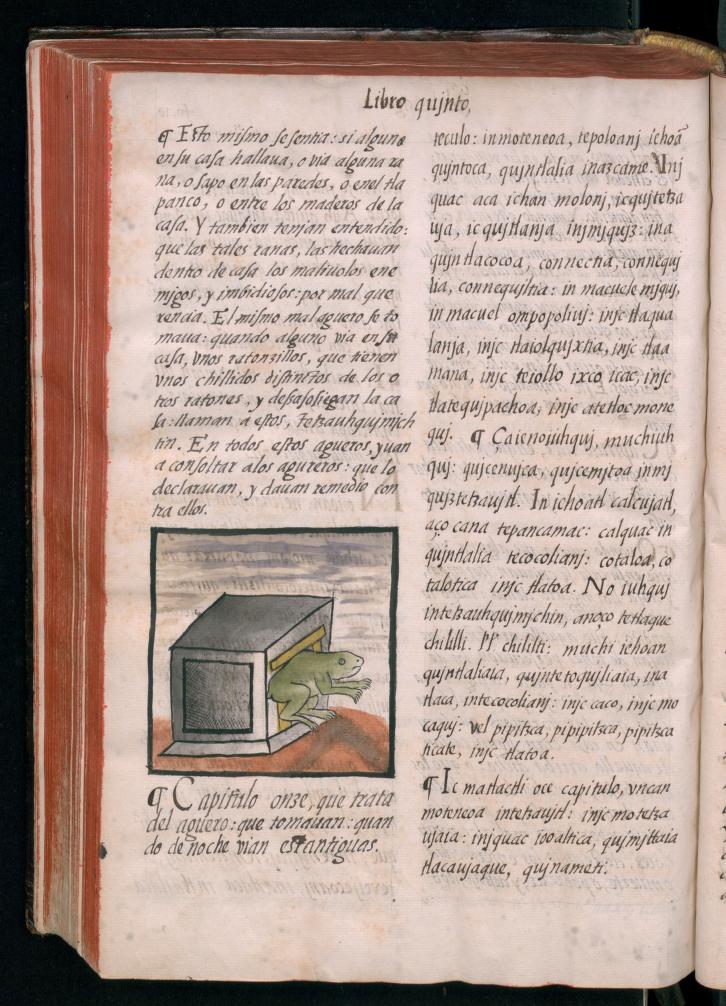 Libro qujnto,
¶ Esto mismo se sentia: si alguno
en su casa hallaua, o via alguna ra
na, o sapo en las paredes, o en el tla
panco, o entre los maderos de la
casa. Y tambien tenjan entendido:
que las tales ranas, las hechauan
dentro de casa los maliuolos ene
mjgos, y imbidiosos: por mal que
rencia. El mismo mal aguero se to
maua: quando alguno via en su
casa, vnos ratonzillos, que tienen
vnos chillidos distintos de los o
tros ratones, y desasosiegan la ca
sa: llaman a estos, tetzauhqujmjch
tin. En todos estos agueros, yuan
a consoltar a los agureros: que lo
declarauan, y dauan remedio con
tra ellos.
¶ Capitulo onze, que trata
del aguero: que tomauan: quan
do de noche vian estantiguas.
teculo: in moteneoa, tepoloanj ichoã
qujntoca, qujntlalia inazcame. Inj
quac aca ichan molonj, ic qujtetza
uja, ic qujtlanja injmjqujz: ina
qujn tlacocoa, connectia, connequj
lia, connequjltia: in macuele mjquj,
in macuel ompopoliuj: injc tlaqua
lanja, injc tlaiolqujxtia, injc tlaa
mana, injc teiollo ixco icac, injc
tlatequjpachoa, injc atetloc mone
quj. ¶ Çaienoiuhquj, muchiuh
quj: qujcenujca, qujcemjtoa inmj
qujztetzaujtl. In ichoatl calcujatl,
aço cana tepancamac: calquac in
qujntlalia tecocolianj: cotaloa, co
talotica injc tlatoa. No iuhquj
in tetzauhqujmjchin, anoço tetlaque
chililli. chililti: muchi iehoan
qujntlaliaia, qujntetoqujliaia, ina
tlaca, intecocolianj: injc caco, injc mo
caquj: vel pipitzca, pipipitzca, pipitzca
ticate, injc tlatoa.
¶ Ic matlactli oce capitulo, vncan
moteneoa intetzaujtl: injc motetza
ujaia: injquac iooaltica, qujmjttaia
tlacaujaque, qujnameti.